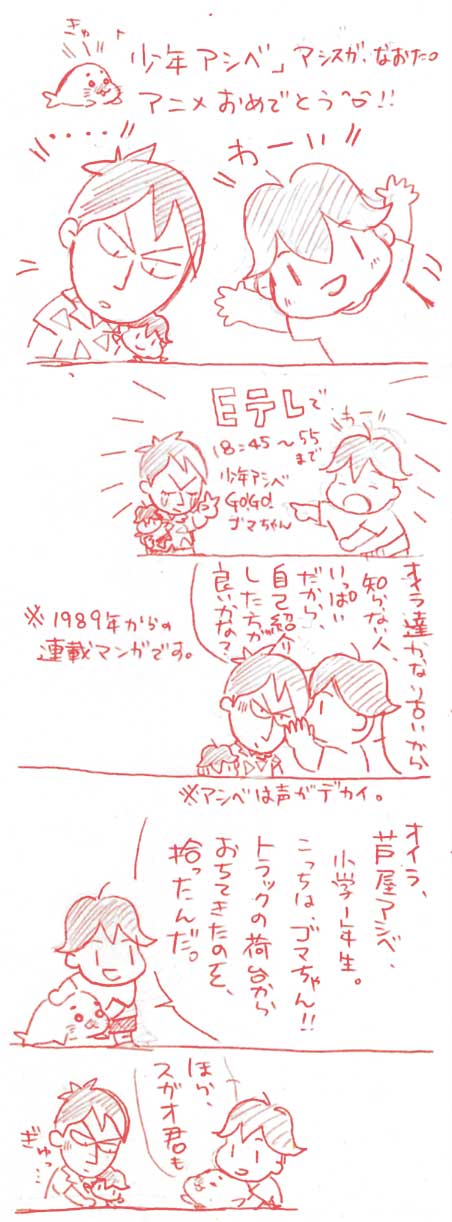 きゅ
少年アシベ」アシスガ、なおた。
アニメおめでとう^o^!!
・・・・
わーいい
Eテレで
18:45〜55
まで
少年アシベ
GO!GO!
ゴマちゃん
わー
オイラ達かなり古いから
知らない人、
いっぱい
だから
自己紹介
したちが
良いかな?
※1989年からの
連載マンガです。
※アシベは声がデカイ。
オイラ、
芦屋アシベ、
小学1年生。
こっちは、ゴマちゃん!!
トラックの荷台から
おちてきたのを、
拾ったんだ。
ほら、
スガオ君も
ぎゅっ…